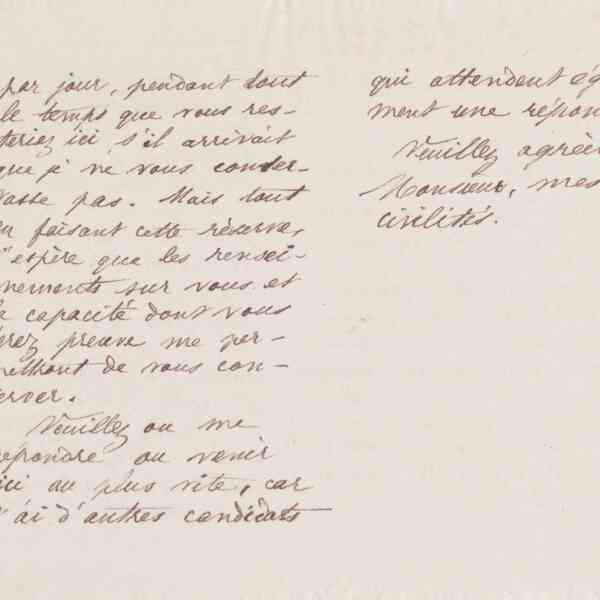 par jour, pendant tout
le temps que vous res-
teriez ici s'il arrivait
que je ne vous conser-
vasse pas. Mais tout
en faisant cette réserve,
j'espère que les rensei-
gnements sur vous et
la capacité dont vous
ferez preuve me per-
mettront de vous con-
server.
Veuillez ou me
répondre ou venir
ici au plus vite, car
j'ai d'autres candidats
qui attendent ég
ment une répon
Veuillez agrée
Monsieur, mes
civilités.